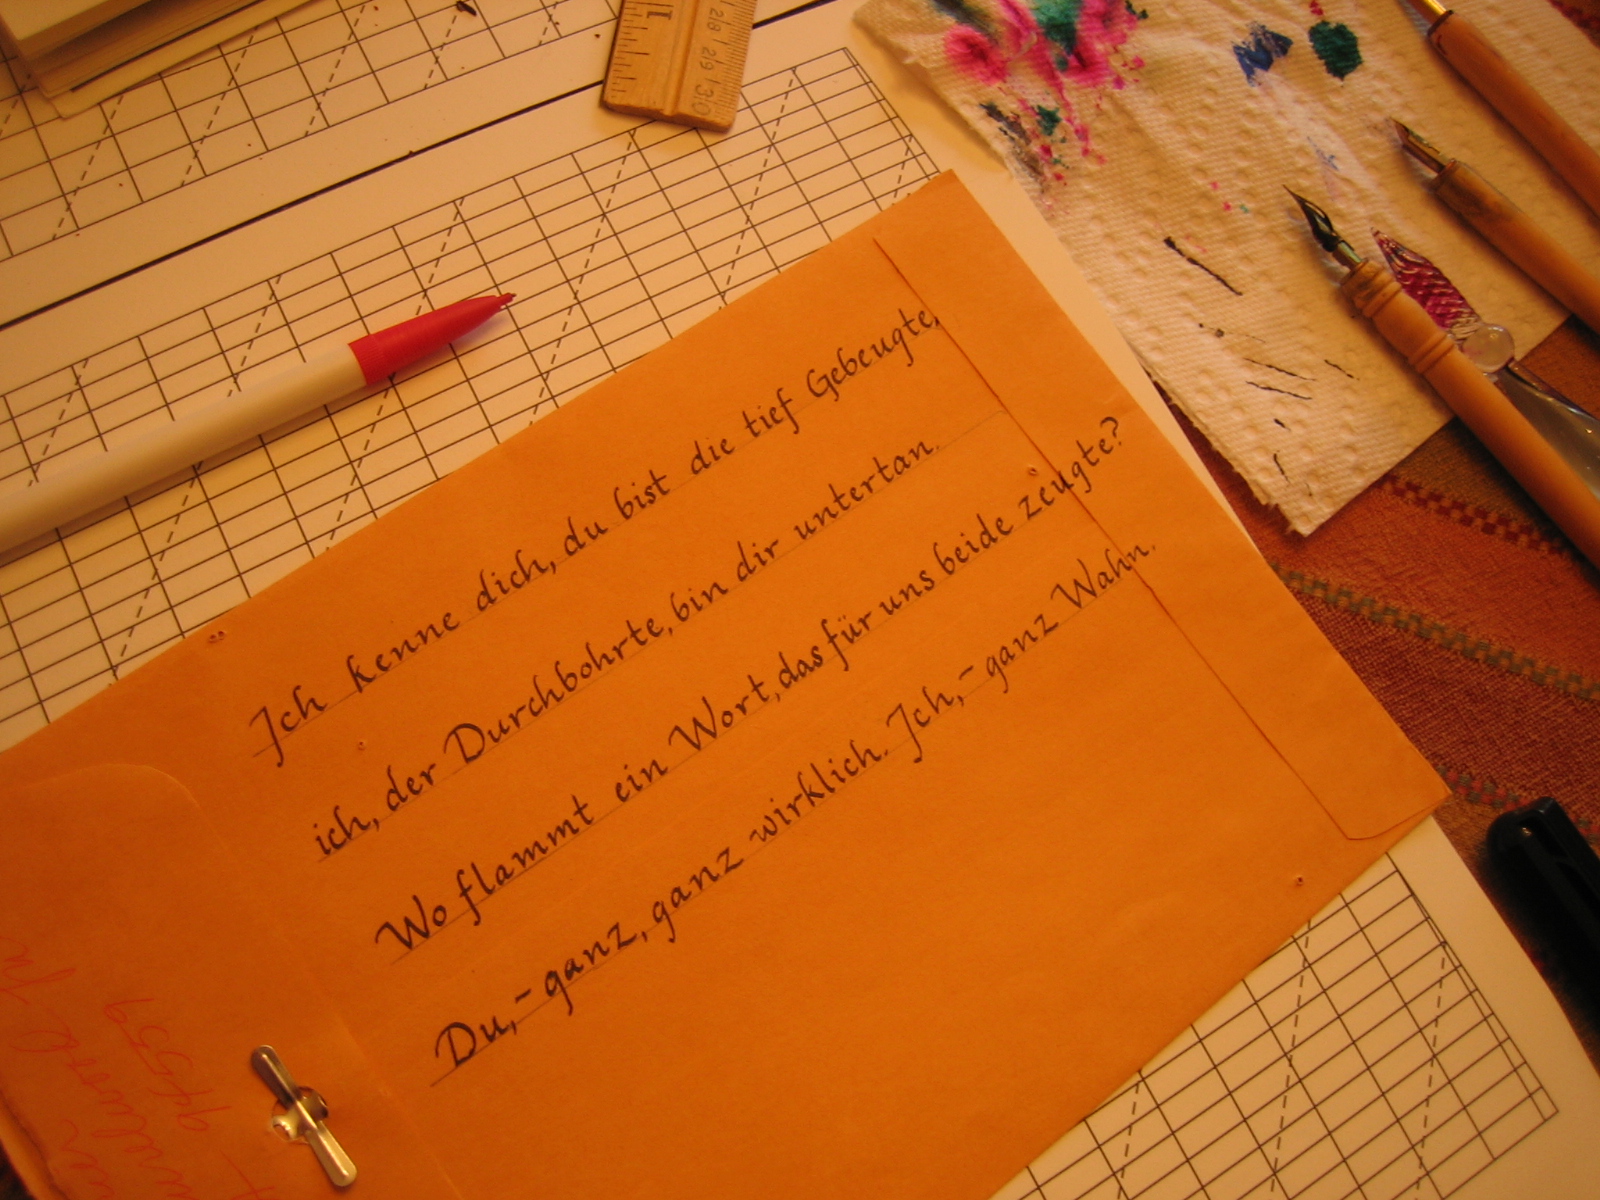 Ich kenne dich, du bist die tief Gebeugte,
ich, der Durchbohrte, bin dir untertan.
Wo flammt ein Wort, das für uns beide zeugte?
Du,- ganz, ganz wirklich. Ich,- ganz Wahn.
28 29 30
1